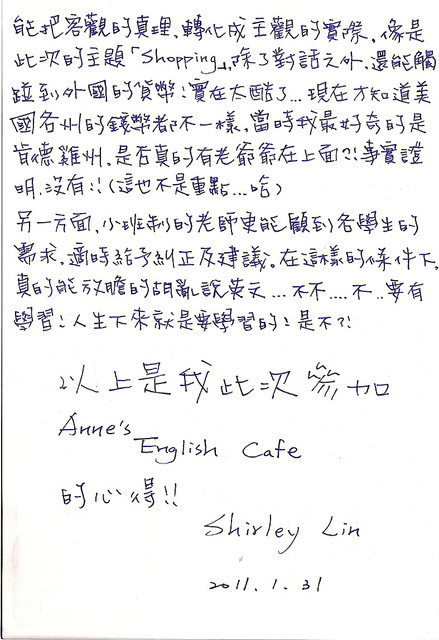 能把客觀的真理,轉化成主觀的實際,像是
此次的主題「Shopping」,除了對話之外,還能觸
踫到外國的貨幣!實在太酷了...現在才知道美
國各州的錢幣都不一樣,當時我最好奇的是
肯德雞州,是否真的有老爺爺在上面?!事實證
明,沒有!!(這也不是重點...哈)
另一方面,小班制的老師更能顧到各學生的
需求,適時給予糾正及建議。在這樣的條件下,
真的能放膽的胡亂說英文...不不....不..要有
學習!人生下來就是要學習的!是不?!
以上是我此次參加
Anne's
English Cafe
的心得!!
Shirley Lin
2011.1.31